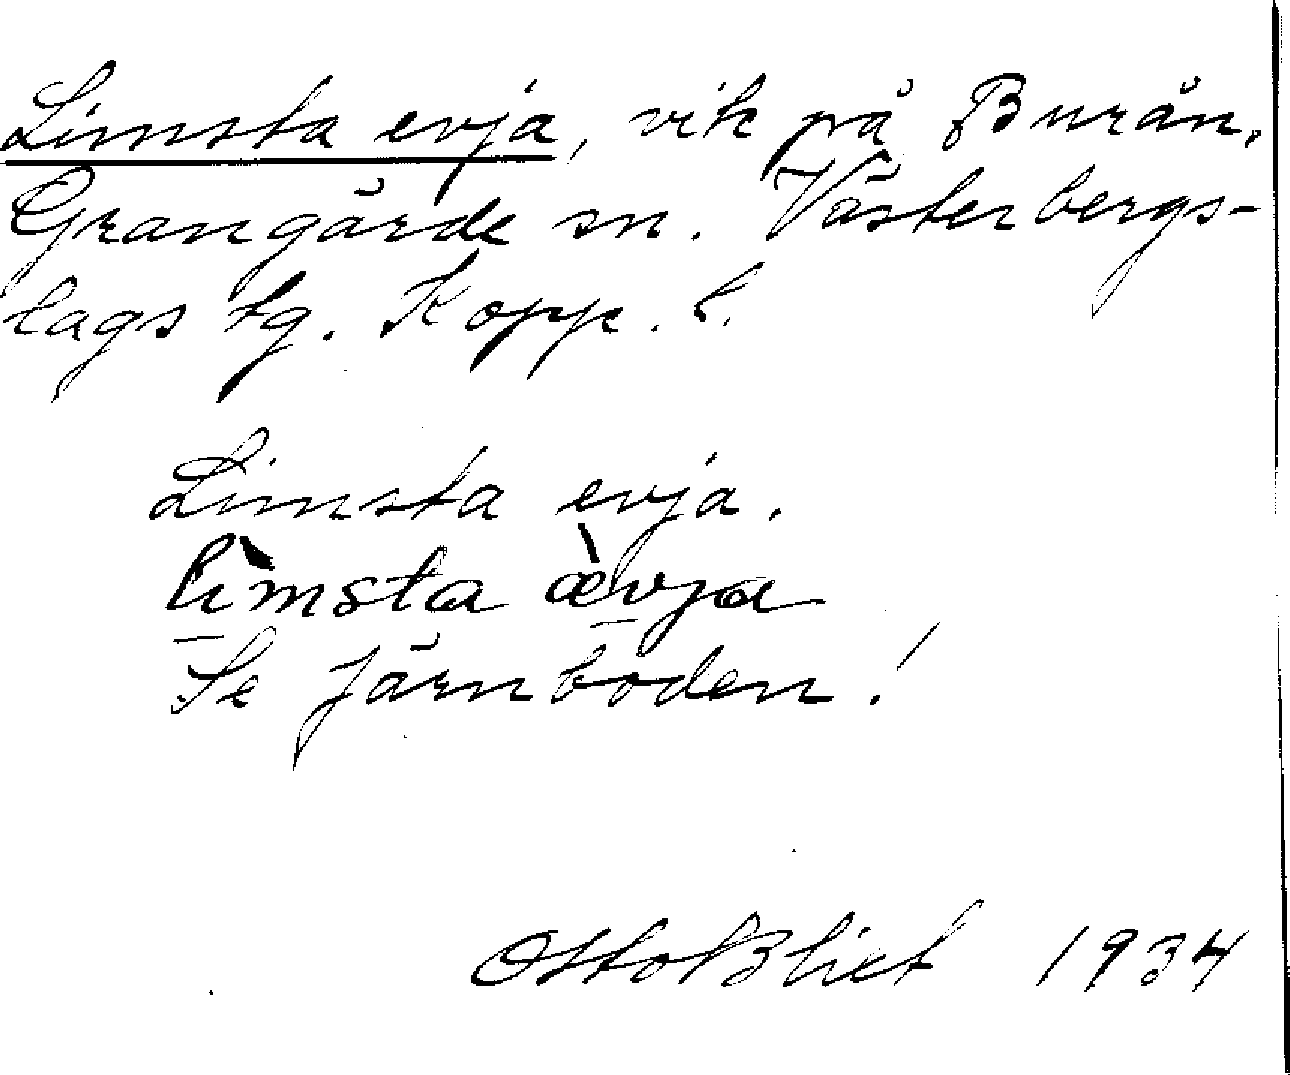 Limsta evja, vik på Burån,
Grangärde sn. Västerbergs-
lags tg. Kopp. l.
Limsta evja.
lìmsta æ̀vja
Se Järnboden!
Otto Blixt 1934